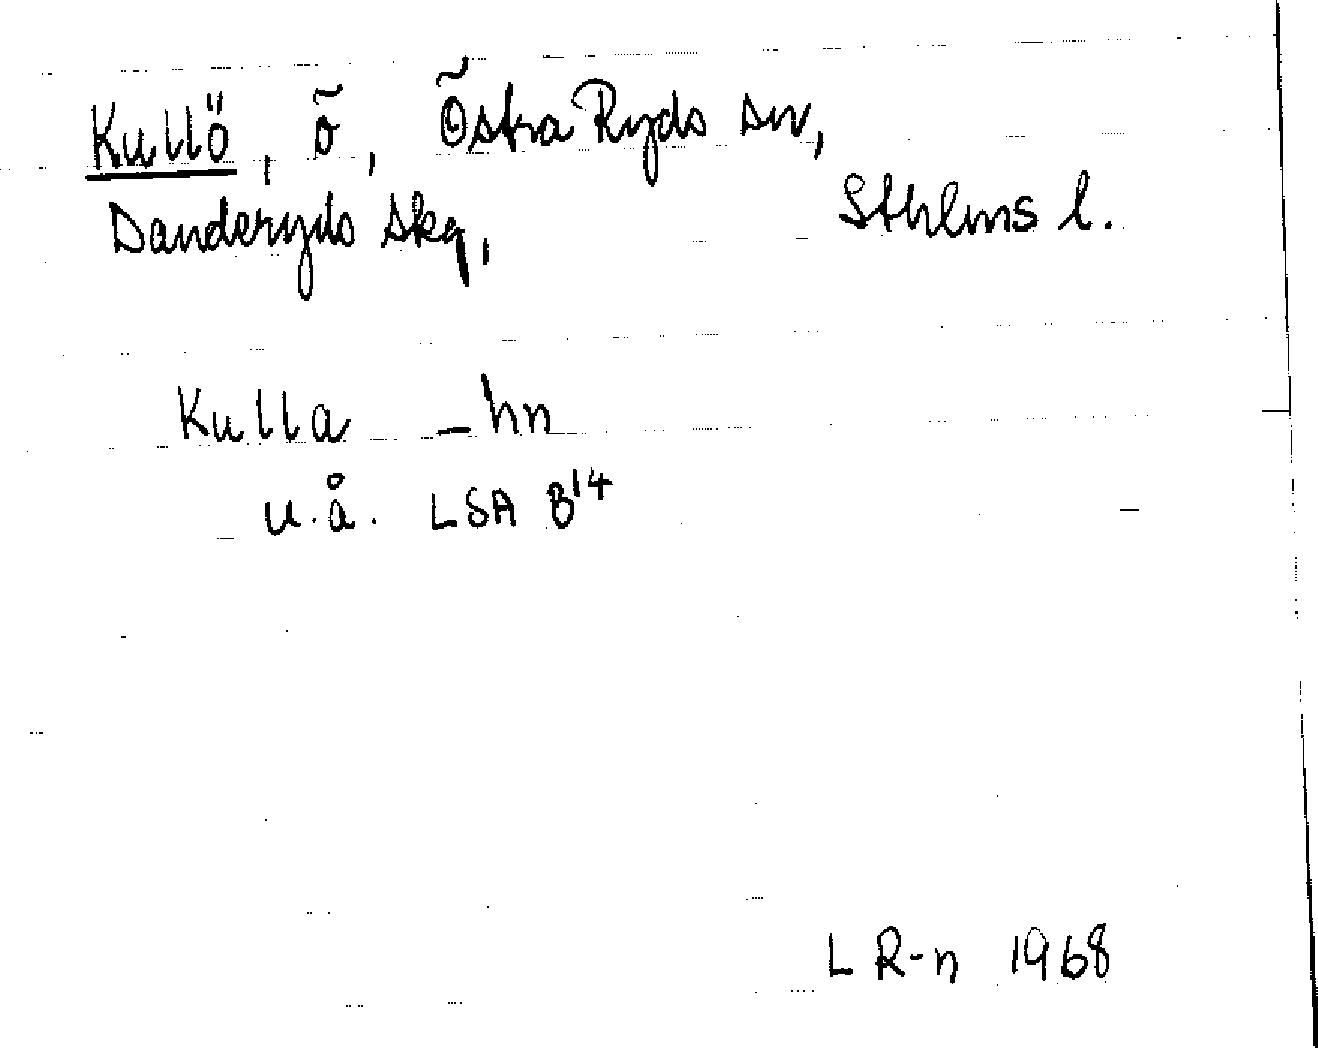 Kullö, ö, Östra Ryds sn,
Danderyds skg, Sthlms l.
Kulla -hn
u.å. LSA B14
L R-n 1968